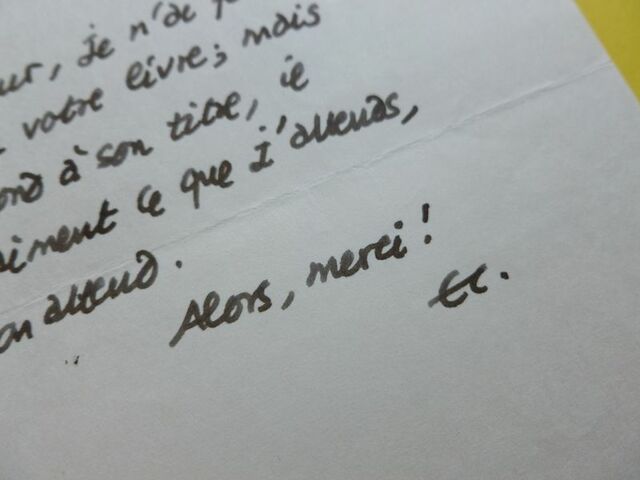 ur, je n'ai
votre livre ; mais
ond à son titre, il
iment ce que j'attends,
on attend.
Alors, merci !
EC.